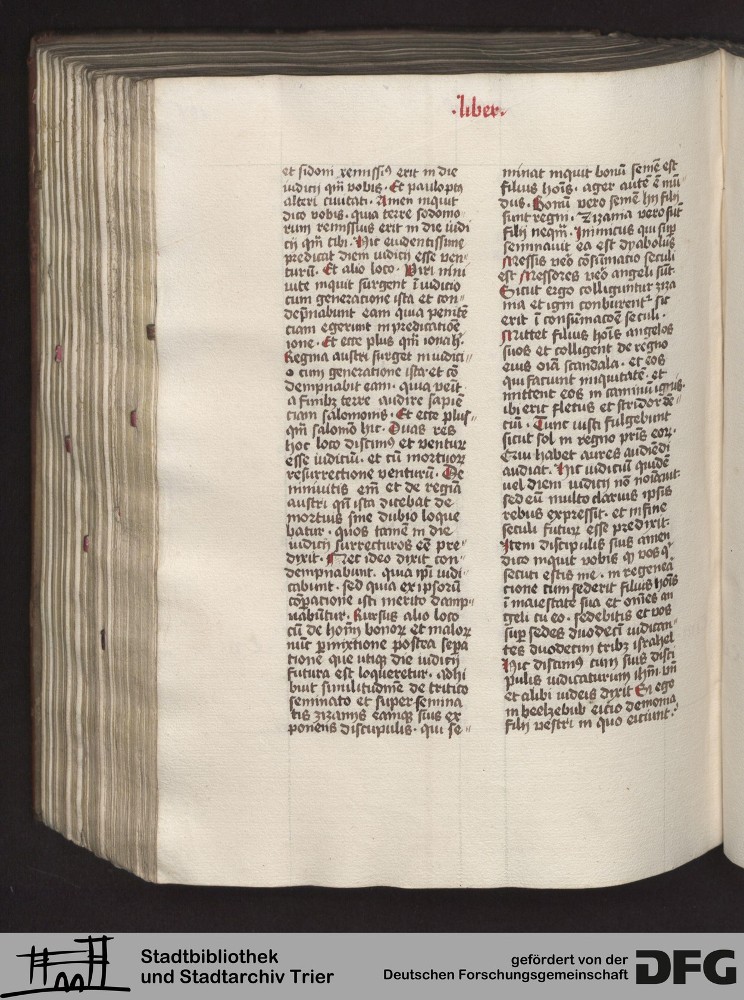 ·liber·
et sidoni remissiꝯ erit in die
iudicij qm̄ vobis · Et paulo pꝯ
alteri ciuitati · Amen inquit
dico vobis · quia terre sodomo
rum remissius erit in die iudi
cij qm̄ tibi · Hic euidentissime
predicat diem iudicij esse ven
turū · Et alio loco · Viri nini
uite inquit surgent ī iudicio
cum generatione ista et con
dēpnabunt eam quia penitē
ciam egerunt in predicatiōe
ione · Et ecce plus qm̄ ionas ·
Regina austri surget in iudici
o cum generatione ista et cō
dempnabit eam · quia venit
a finibꝫ terre audire sapiē
ciam salomonis · Et ecce plus
qm̄ salomō hic · Duas res
hoc loco discimꝯ et venturū
esse iudiciū · et cū mortuoꝝ
resurrectione venturū · De
niniuitis em̄ et de regina
austri qn̄ ista dicebat de
mortuis sine dubio loque
batur · quos tamē in die
iudicij surrecturos eē pre
dixit · Nec ideo dixit con
dempnabunt · quia ip̄i iudi
cabunt · sed quia ex ipsorū
cōpatione isti merito damp
nabūtur · Rursus alio loco
cū de hoīm bonoꝝ et maloꝝ
nūc pmixtione postea sepa
tione que utiqꝫ die iudicij
futura est loqueretur · adhi
buit similitudinē de tritico
seminato et super semina
tis zizanijs eamqꝫ suis ex
ponens discipulis · qui se
minat inquit bonū semē est
filius hoīs · ager autē ē mū
dus · Bonū vero semē hij filij
sunt regni · Zizania vero sūt
filij neqm̄ · Inimicus qui suꝑ
seminauit ea est dyabolus
Messis veō cōsūmatio seculi
est Messores veō angeli sūt
Sicut ergo colliguntur ziza
nia et igni conburent² sic
erit ī consūmacōe seculi ·
Mittet filius hoīs angelos
suos et colligent de regno
eius oīa scandala · et eos
qui faciunt iniquitatē · et
mittent eos in caminū ignis
ibi erit fletus et stridor dē
ciū · Tunc iusti fulgebunt
sicut sol in regno pr̄is eoꝝ ·
Qui habet aures audiēdi
audiat · Hic iudiciū quidē
vel diem iudicij nō noīauit
sed eū multo clarius ipsis
rebus expressit · et in fine
seculi futuꝝ esse predixit ·
Item discipulis suis amen
dico inquit vobis qꝫ vos qͥ
secuti estis me · in regenera
cione cum sederit filius hoīs
ī maiestate sua et om̄es an
geli cū eo · sedebitis et vos
suꝑ sedes duodecī iudican
tes duodecim tribꝫ israhel
Hic discimꝯ cum suis disci
pulis iudicaturum ih̄m vn̄
et alibi iudeis dixit Si ego
in beelzebub eicio demonia
filij vestri in quo eiciunt ·
Stadtbibliothek
und Stadtarchiv Trier
gefördert von der
Deutschen Forschungsgemeinschaft
DFG